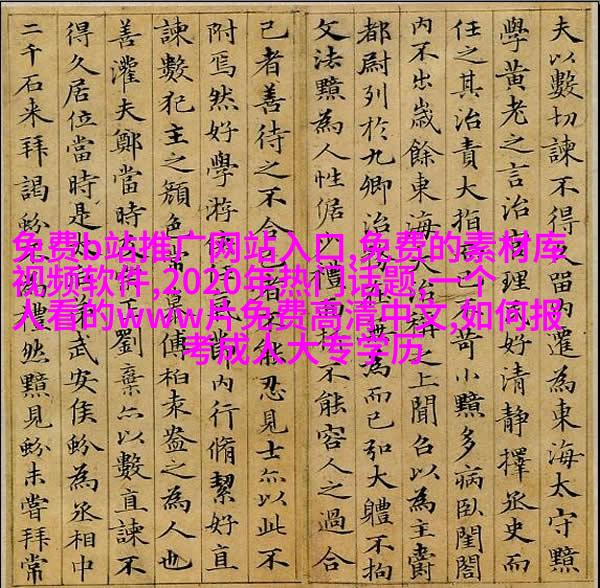 夫以數切諫不得久留內遷為東海太守黯
學黃老之言治官理民好清靜擇丞史而
任之其治責大指而已不苛小黯多病臥閨閤
內不出歲餘東海大治稱之上聞召以為主爵
都尉列於九卿治務在無為而已弘大體不拘
文法黯為人性倨少禮面折不能容人之過合
己者善待之不合己者不能忍見士亦以此不
附焉然好學游俠任氣節內行脩絜好直
諫數犯主之顏色常慕傅柏袁盎之為人也
善灌夫鄭當時及宗正劉棄亦以數直諫不
得久居位當時是太后弟武安侯蚡為丞相中
二千石來拜謁蚡不為禮然黯見蚡未嘗拜常
免费b站推广网站入口,免费的素材库
视频软件,2020年热门话题,一个
人看的www片免费高清中文,如何报
考成人大专学历